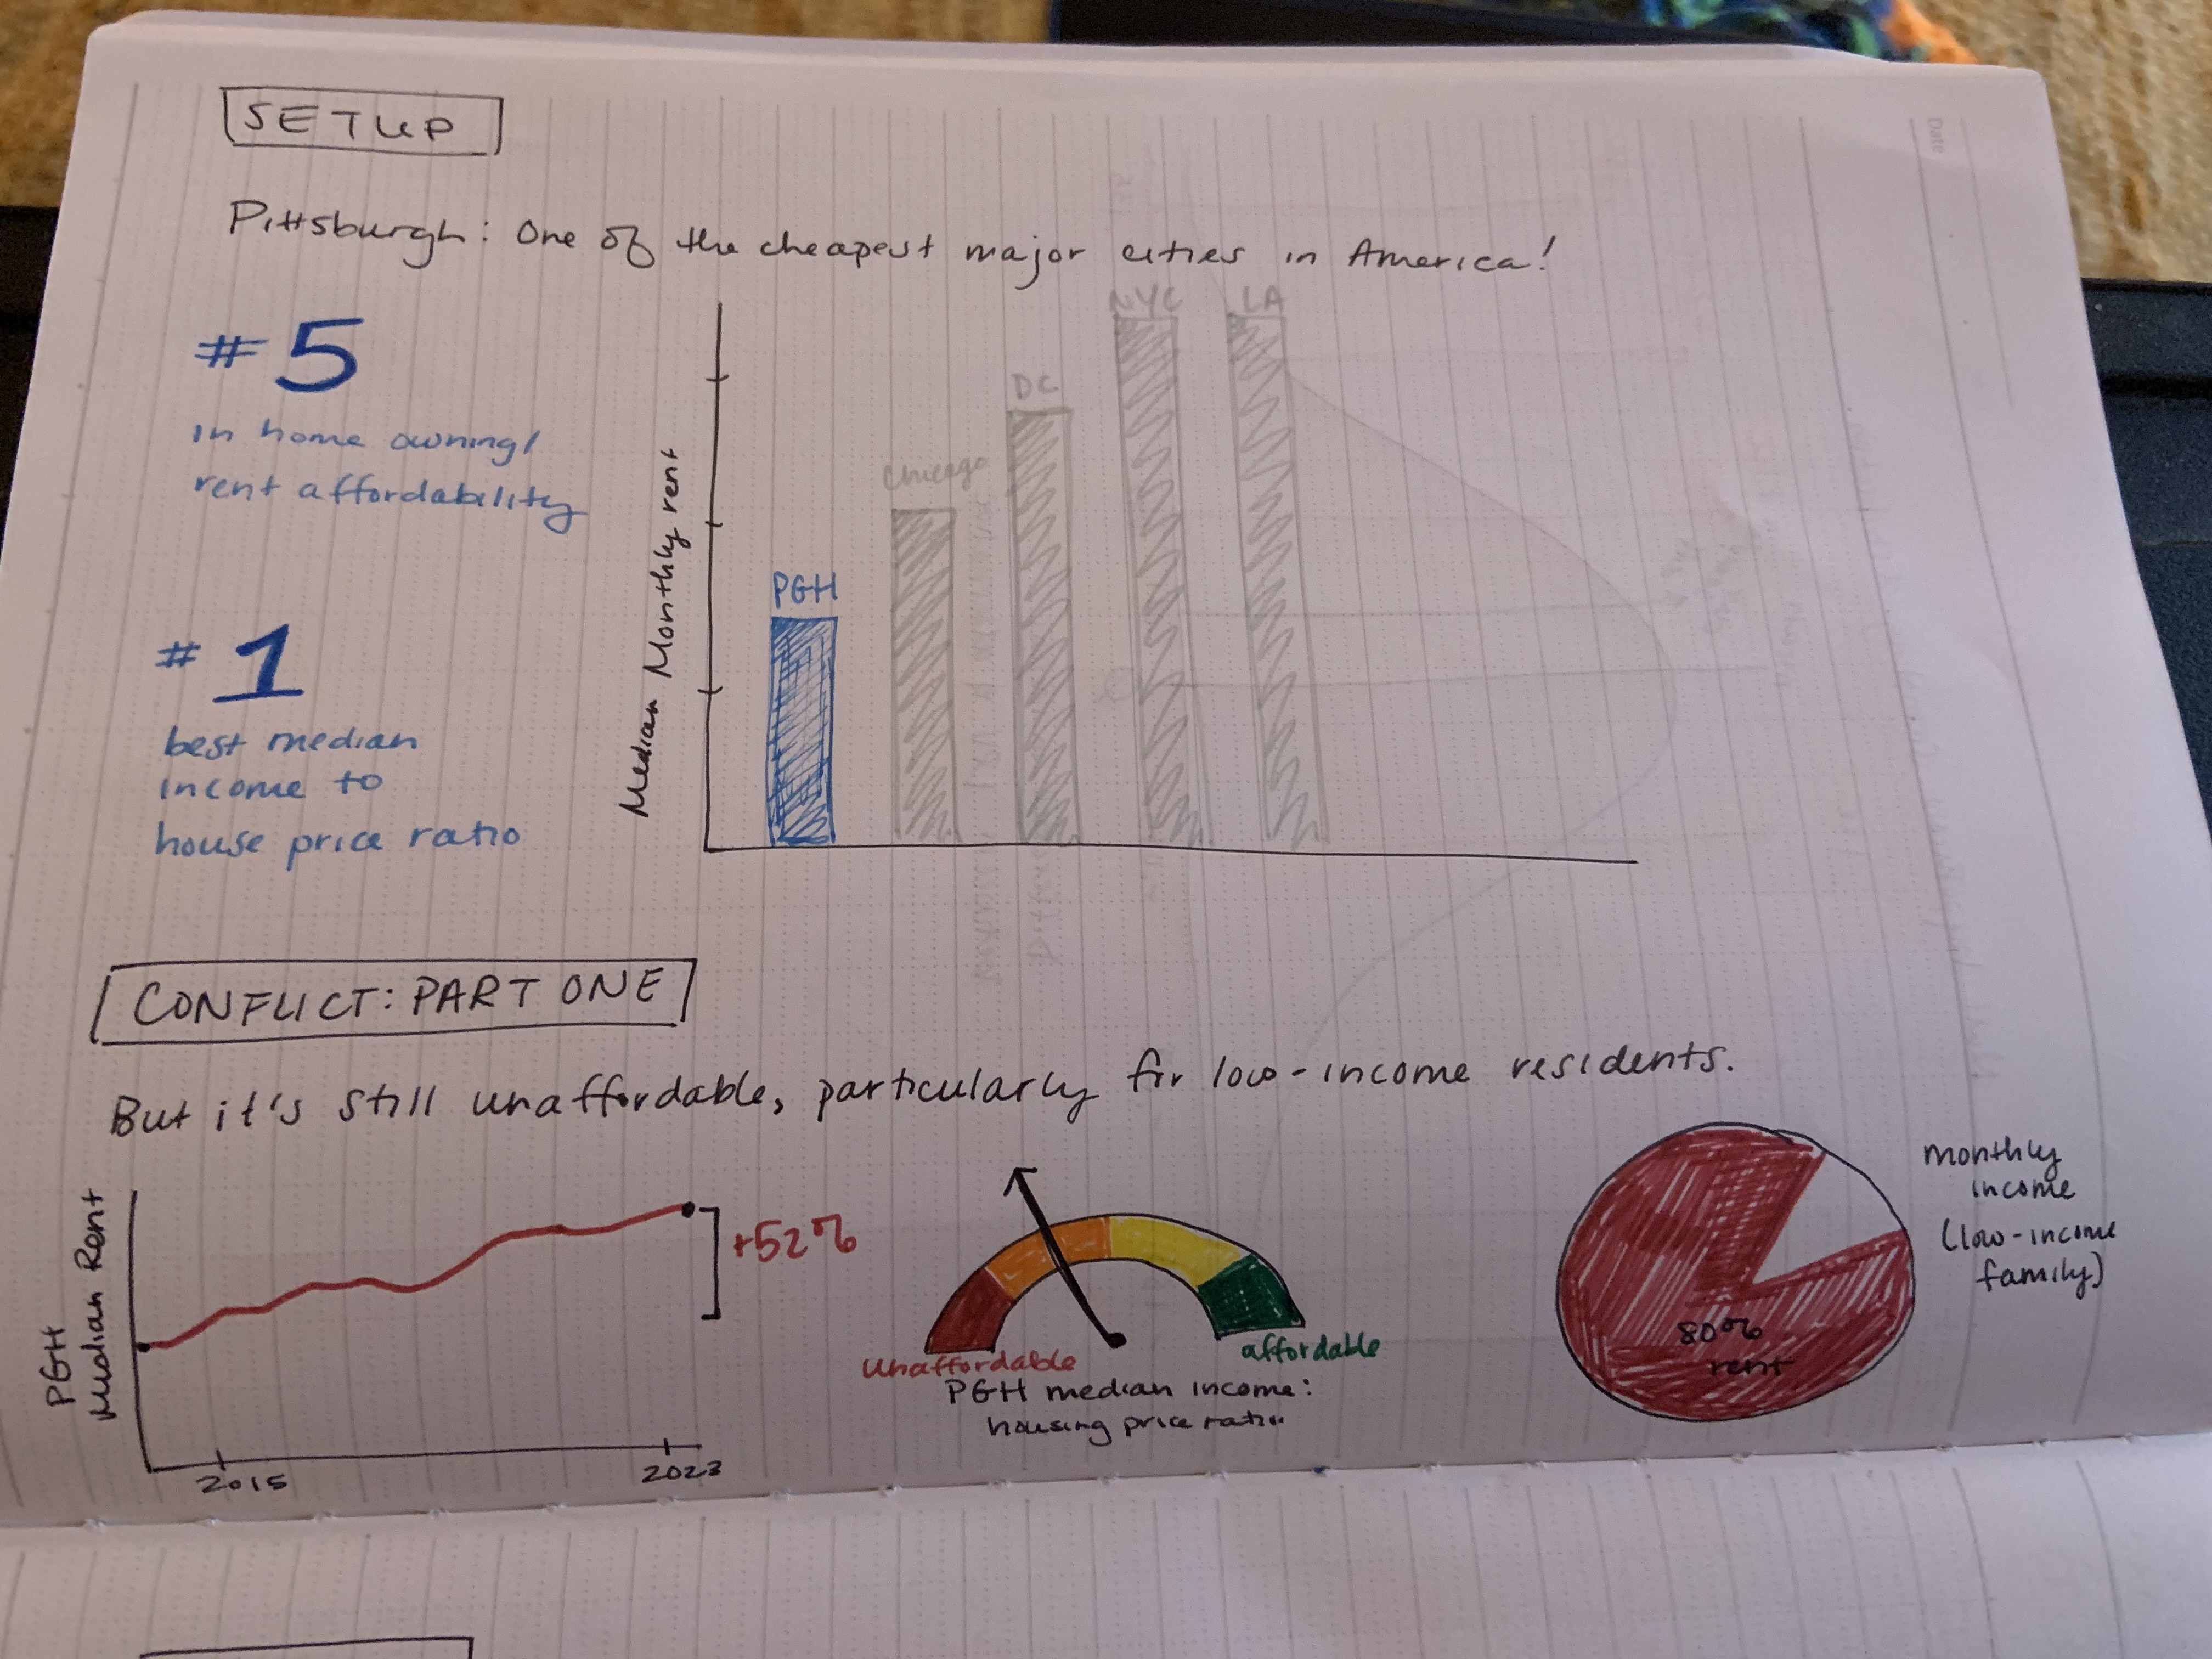 SETUP
Pittsburgh: One of the cheapest major cities in America!
#5
in home owning/
rent affordability
#1
best median
income to
house price ratio
Median Monthly rent
PGH
Chicago
DC
NYC
LA
Date
CONFLICT: PART ONE
But it's still unaffordable, particularly for low-income residents.
PGH
Median Rent
2015
2023
+52%
unaffordable
affordable
PGH median income:
housing price ratio
monthly
income
(low-income
family)
80%
rent